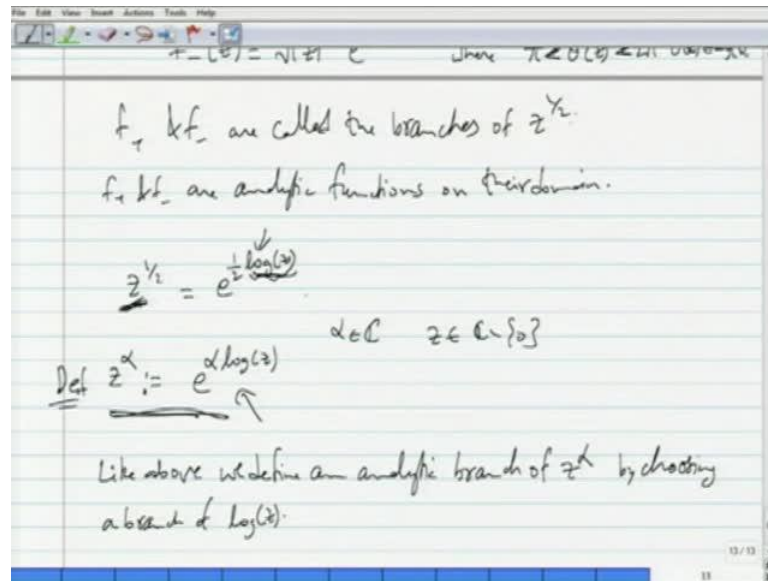 File Edit View Insert Actions Tools Help
f₊ & f₋ are called the branches of z^{1/2}.
f₊ & f₋ are analytic functions on their domain.
z^{1/2} = e^{1/2 log(z)}
α ∈ ℂ z ∈ ℂ \ {0}
Def z^α := e^{α log(z)}
Like above we define an analytic branch of z^α by choosing
a branch of log(z).
13 / 13
13